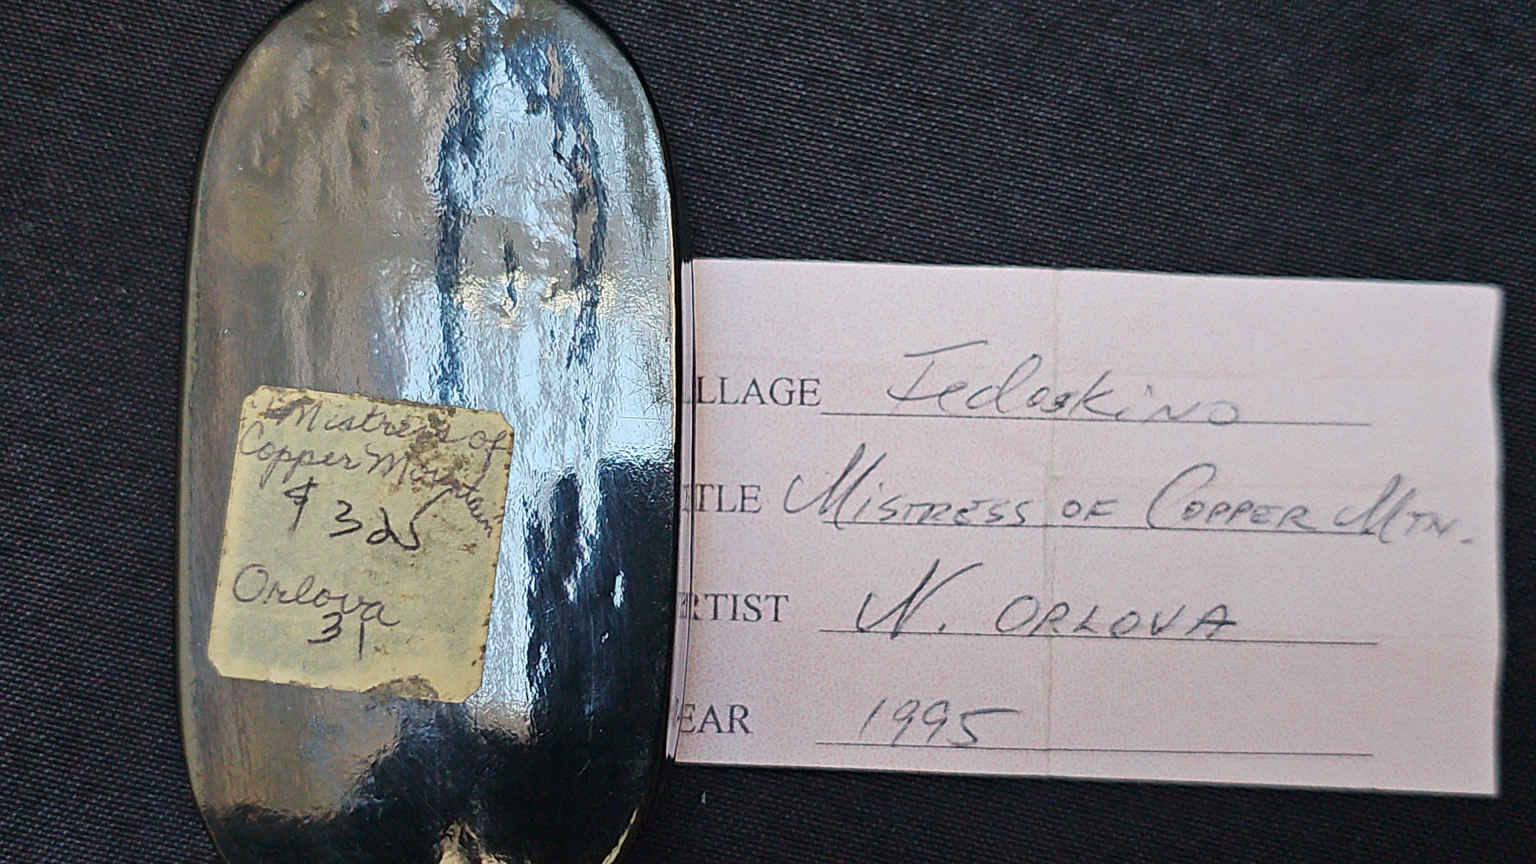 Mistress of
Copper Mountain
$325
Orlova
31
LLAGE Fedoskino
TLE Mistress of Copper Mtn.
RTIST N. ORLOVA
EAR 1995